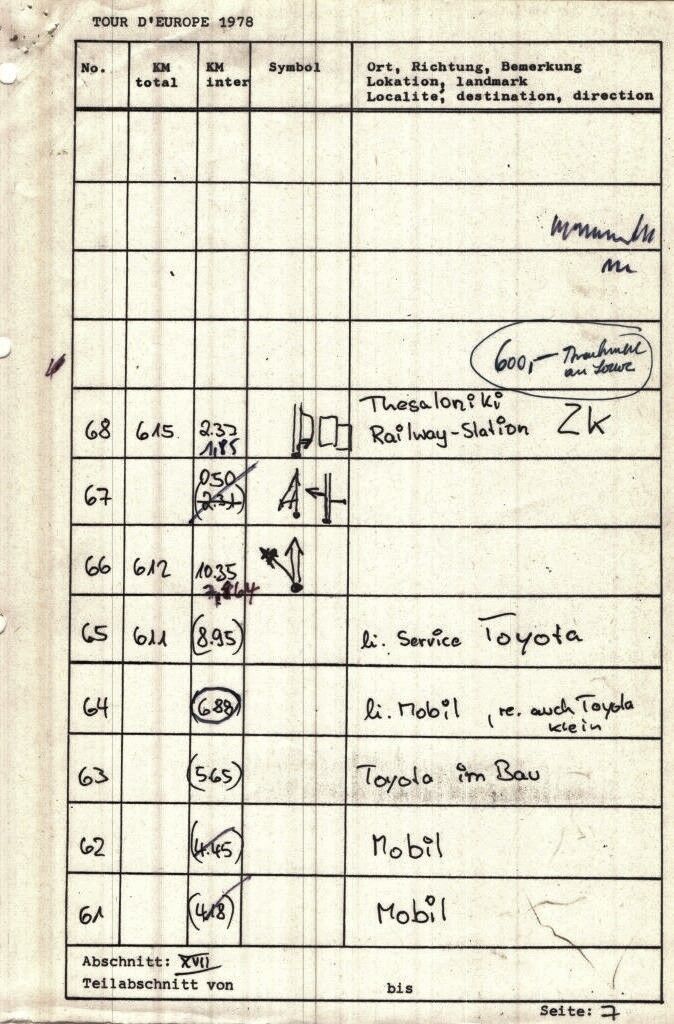 TOUR D'EUROPE 1978
No. KM total KM inter Symbol Ort, Richtung, Bemerkung
Lokation, landmark
Localite, destination, direction
600,-
68 615 2.37 Thesaloniki
1,85 Railway-Station ZK
67 0.50
(2.31)
66 612 10.35
65 611 (8.95) li. Service Toyota
64 (6.88) li. Mobil, re. auch Toyota
klein
63 (5.65) Toyota im Bau
62 (4.45) Mobil
61 (4.18) Mobil
Abschnitt: XVII
Teilabschnitt von bis
Seite: 7